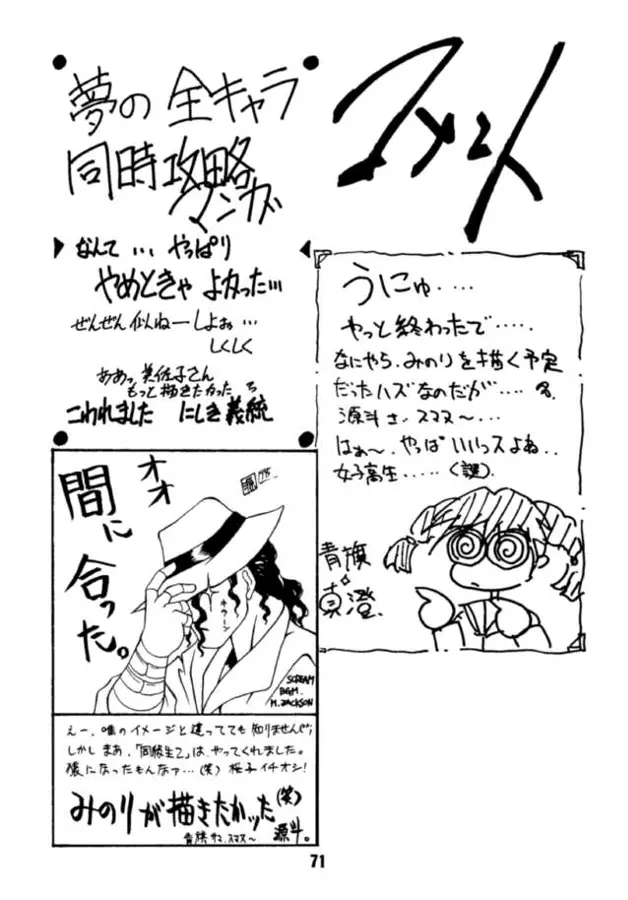 コメント
夢の全キャラ
同時攻略
マンガ
なんて…やっぱり
やめときゃよかった…
ぜんぜん似ねーしよぉ…
しくしく
ああっ美佐子さん
もっと描きたかった
こわれました にしき義統
うにゅ・・・・
やっと終わったで・・・・・
なにやら、みのりを描く予定
だったハズなのだが・・・・
源斗さ、スマヌ〜・・・
はぁ〜、やっぱいいっスよね‥
女子高生・・・・・(謎)
青旗
真澄
オオ
間に
合った。
SCREAM
BGM.
M.JACKSON
えー、唯のイメージと違ってても知りませんぜ
しかしまあ、「同級生2」は、やってくれました。
猿になったもんなァ…(笑)桜子イチオシ!
みのりが描きたかッた(笑)
青旗サマ、スマヌ〜
源斗。
71